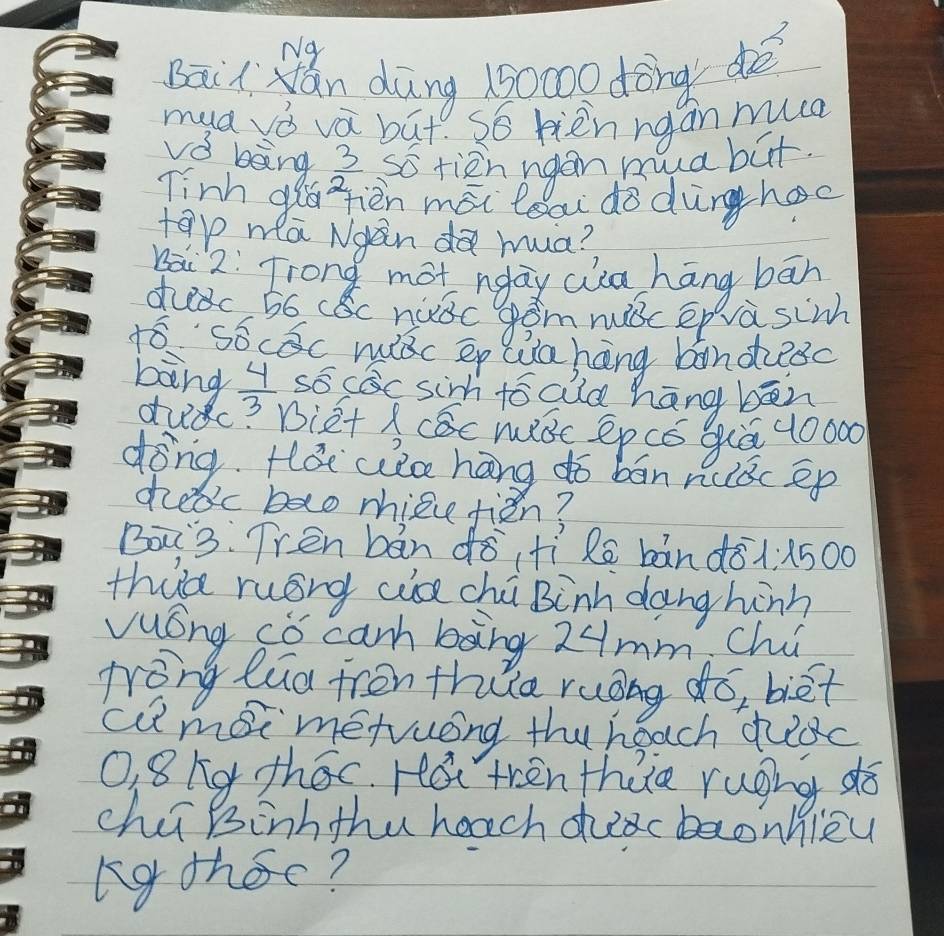 Bài 1: Ngân dùng 150000 đồng để
mua vở và bút. Số tiền ngân mua
vở bằng 3/2 số tiền ngân mua bút.
Tính giá tiền mỗi loại đồ dùng học
tập mà Ngân đã mua?
Bài 2: Trong một ngày cửa hàng bán
được 56 cốc nước gồm nước ép và sinh
tố. Số cốc nước ép cửa hàng bán được
bằng 4/3 số cốc sinh tố của hàng bán
được? Biết 1 cốc nước ép có giá 40000
đồng. Hỏi cửa hàng đó bán nước ép
được bao nhiêu tiền?
Bài 3: Trên bản đồ, tỉ lệ bản đồ 1:1500
thửa ruộng của chú Bình dạng hình
vuông có cạnh bằng 24mm. Chú
trồng lúa trên thửa ruộng đó, biết
cứ mỗi mét vuông thu hoạch được
0,8 kg thóc. Hỏi trên thửa ruộng đó
chú Bình thu hoạch được bao nhiêu
kg thóc?